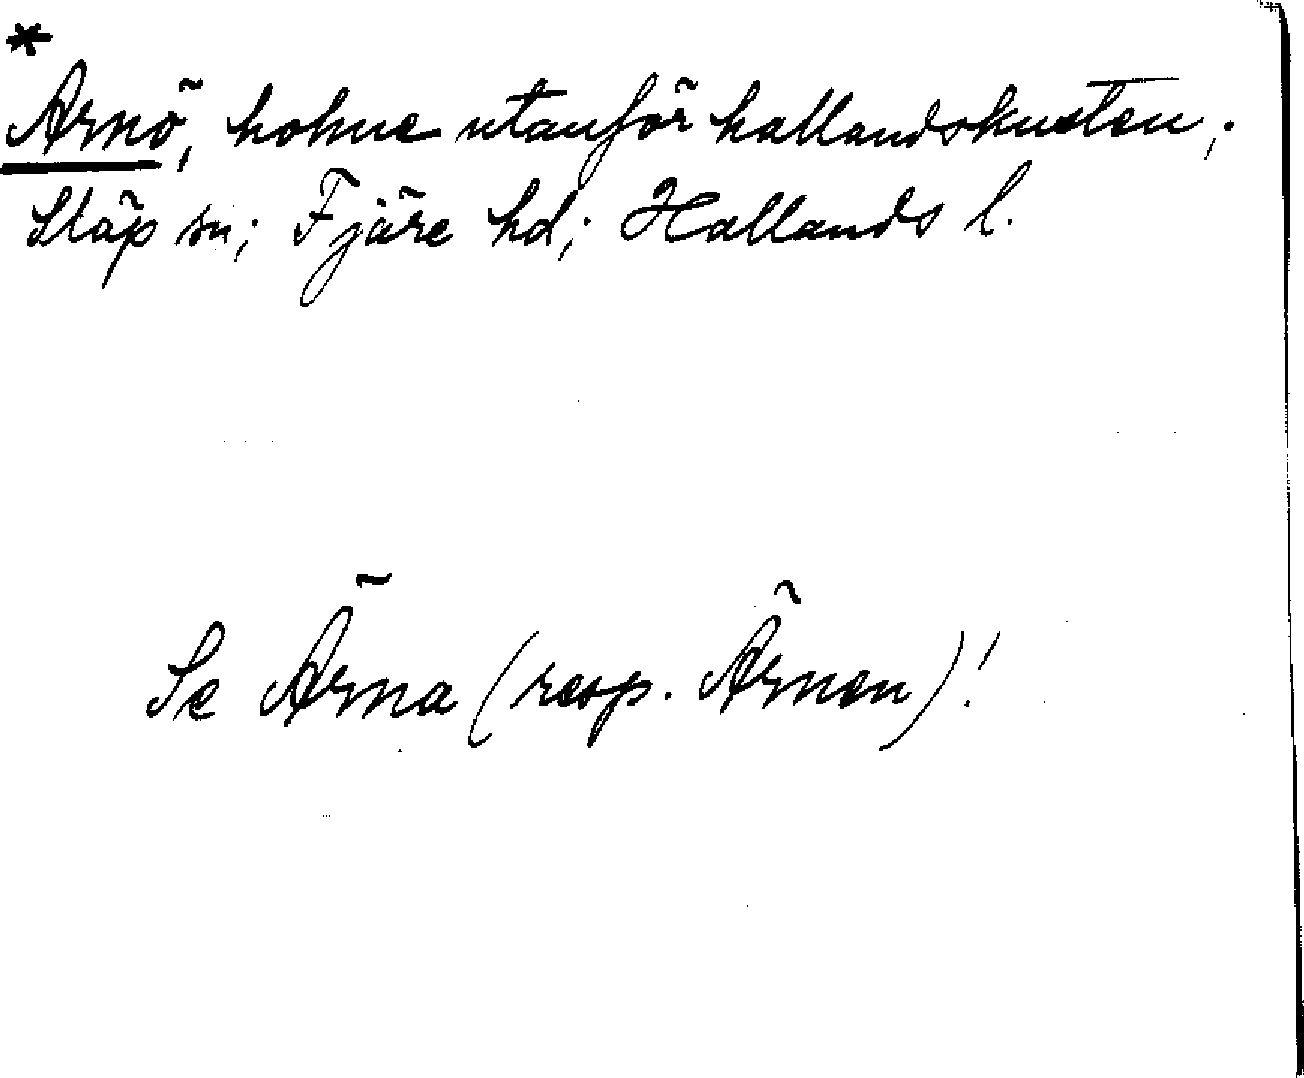 *
Arnö, holme utanför hallandskusten;
Släp sn; Fjäre hd; Hallands l.
Se Ärna (resp. Ärnen)!